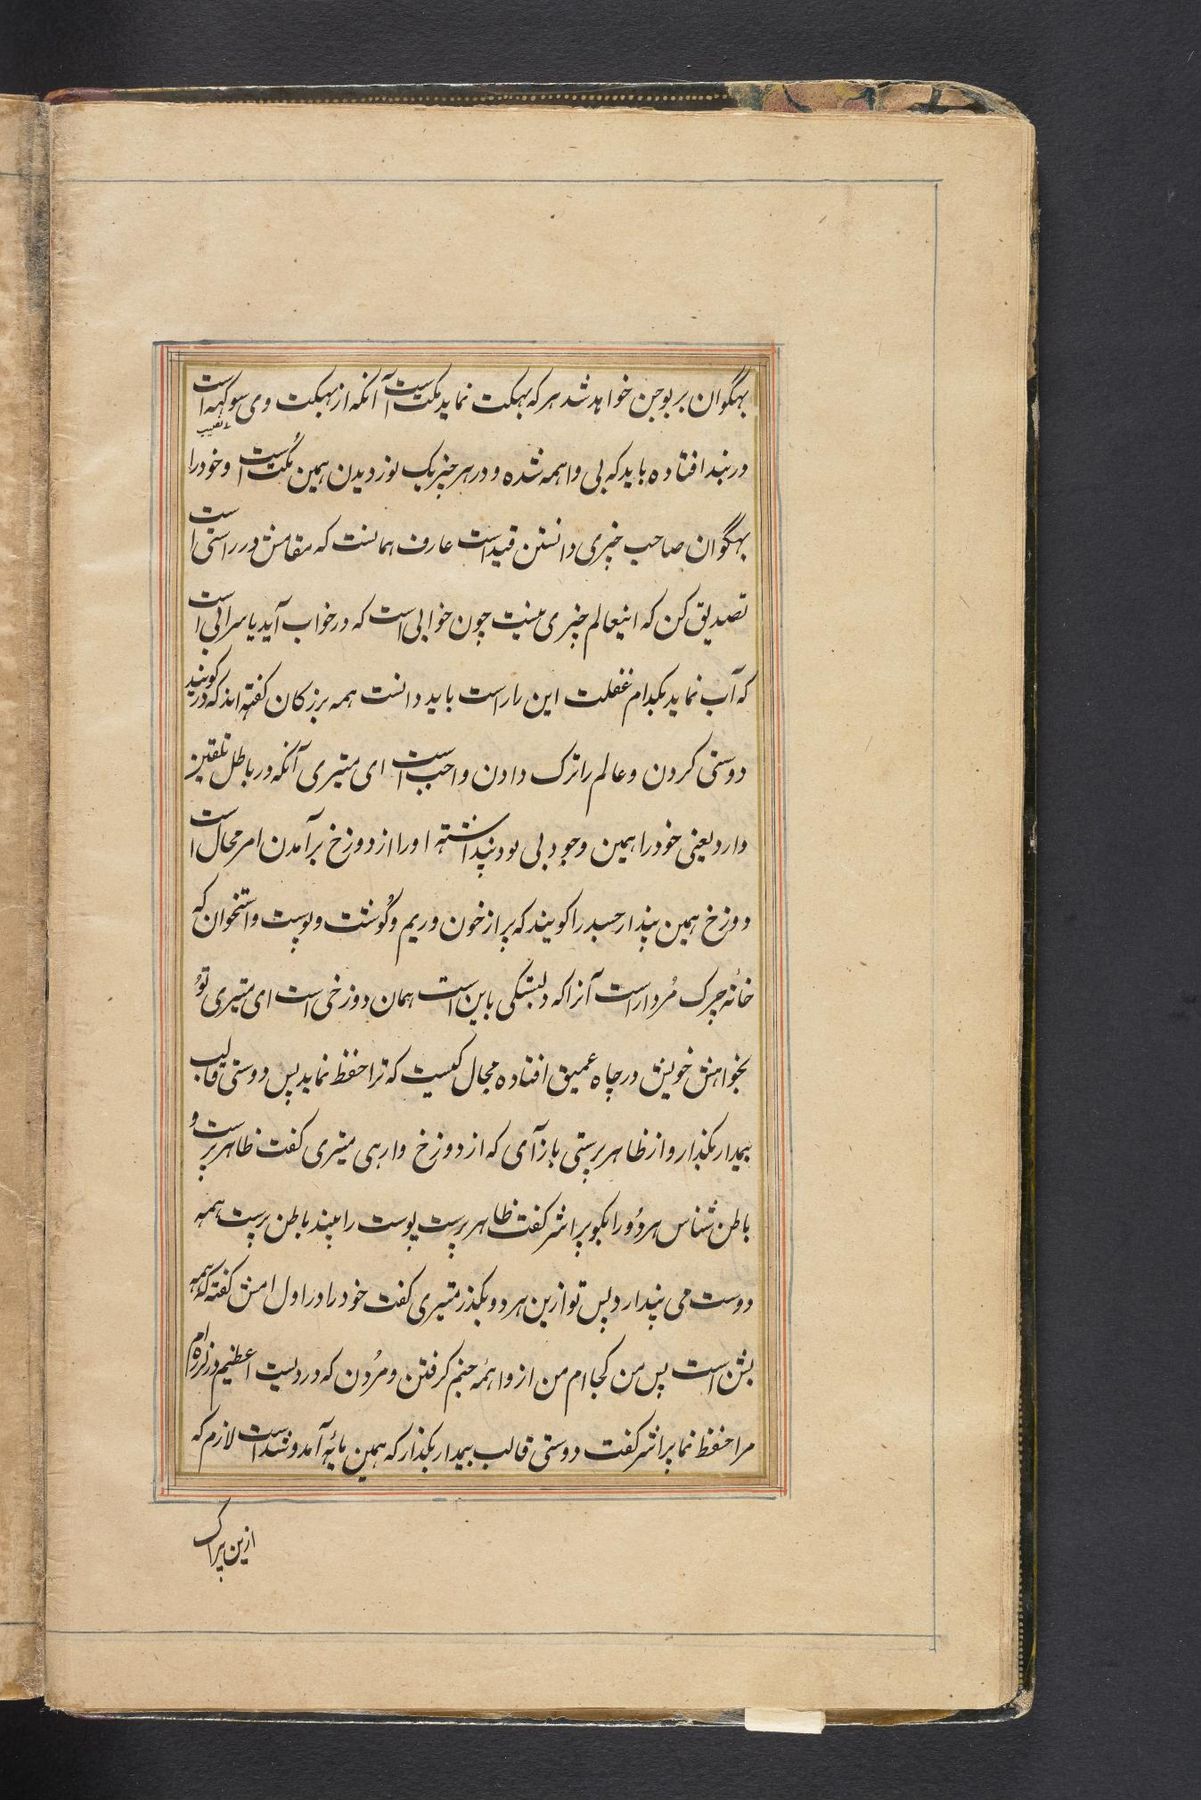 بهگوان بربوجن خواهد شد هر که بهکت نماید مکت است آنکه از بهکت وی سوکهه است
در بند افتاده باید که بی واهمه شده و در هر چیز یک نور دیدن همین مکت است و خود را
بهگوان صاحب چیزی دانستن قید است عارف همانست که مقامش در راستی است
تصدیق کن که اینعالم چیزی نیست چون خوابی است که در خواب آید یا سرابی است
که آب نماید بکدام غفلت این را راست باید دانست همه بزرکان کفته اند که در کوبند
دوستی کردن و عالم را ترک دادن واجب است ای متیری آنکه در باطل تلقین
دارد یعنی خود را همین وجود بی بود پنداشته او را از دوزخ برآمدن امر محال است
دوزخ همین پندار جسد را کویند که پر از خون و ریم و کوشت و پوست و استخوان که
خانه چرک مردار است آنرا که دلبستکی باین است همان دوزخی است ای متیری تو
بخواهش خویش در چاه عمیق افتاده مجال کیست که ترا حفظ نماید پس دوستی قالب
بیدار بکذار و از ظاهر پرستی باز آی که از دوزخ وارهی متیری کفت ظاهر پرست و
باطن شناس هر دو را بکو پراشر کفت ظاهر پرست پوست را بیند باطن پرست همه
دوست می پندارد پس تو ازین هر دو بکذر متیری کفت خود را در اول امش کفته که همه
بشن است پس من کجا ام من از واهمه جنم کرفتن و مردن که دردیست اعظیم در لرزه ام
مرا حفظ نما پراشر کفت دوستی قالب بیدار بکذار که همین پایه آمد و شد است لازم که
ازین پراک